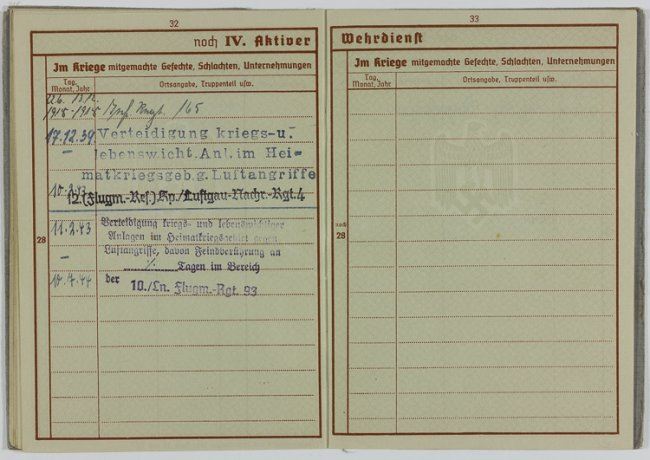 32
noch IV. Aktiver
Im Kriege mitgemachte Gefechte, Schlachten, Unternehmungen
Tag, Monat, Jahr
Ortsangabe, Truppenteil usw.
1915-1915 Inf. Regt. 165
17.12.39 Verteidigung kriegs-u.
– lebenswicht. Anl. im Hei-
matkriegsgeb. g. Luftangriffe
10.2.43 12.(Flugm.-Res.) Kp./Luftgau-Nachr.-Rgt. 4
28
11.2.43 Verteidigung kriegs- und lebenswichtiger
Anlagen im Heimatkriegsgebiet gegen
– Luftangriffe, davon Feindberührung an
Tagen im Bereich
10.7.44 der 10./Ln. Flugm.-Rgt. 93
33
Wehrdienst
Im Kriege mitgemachte Gefechte, Schlachten, Unternehmungen
Tag, Monat, Jahr
Ortsangabe, Truppenteil usw.
noch
28